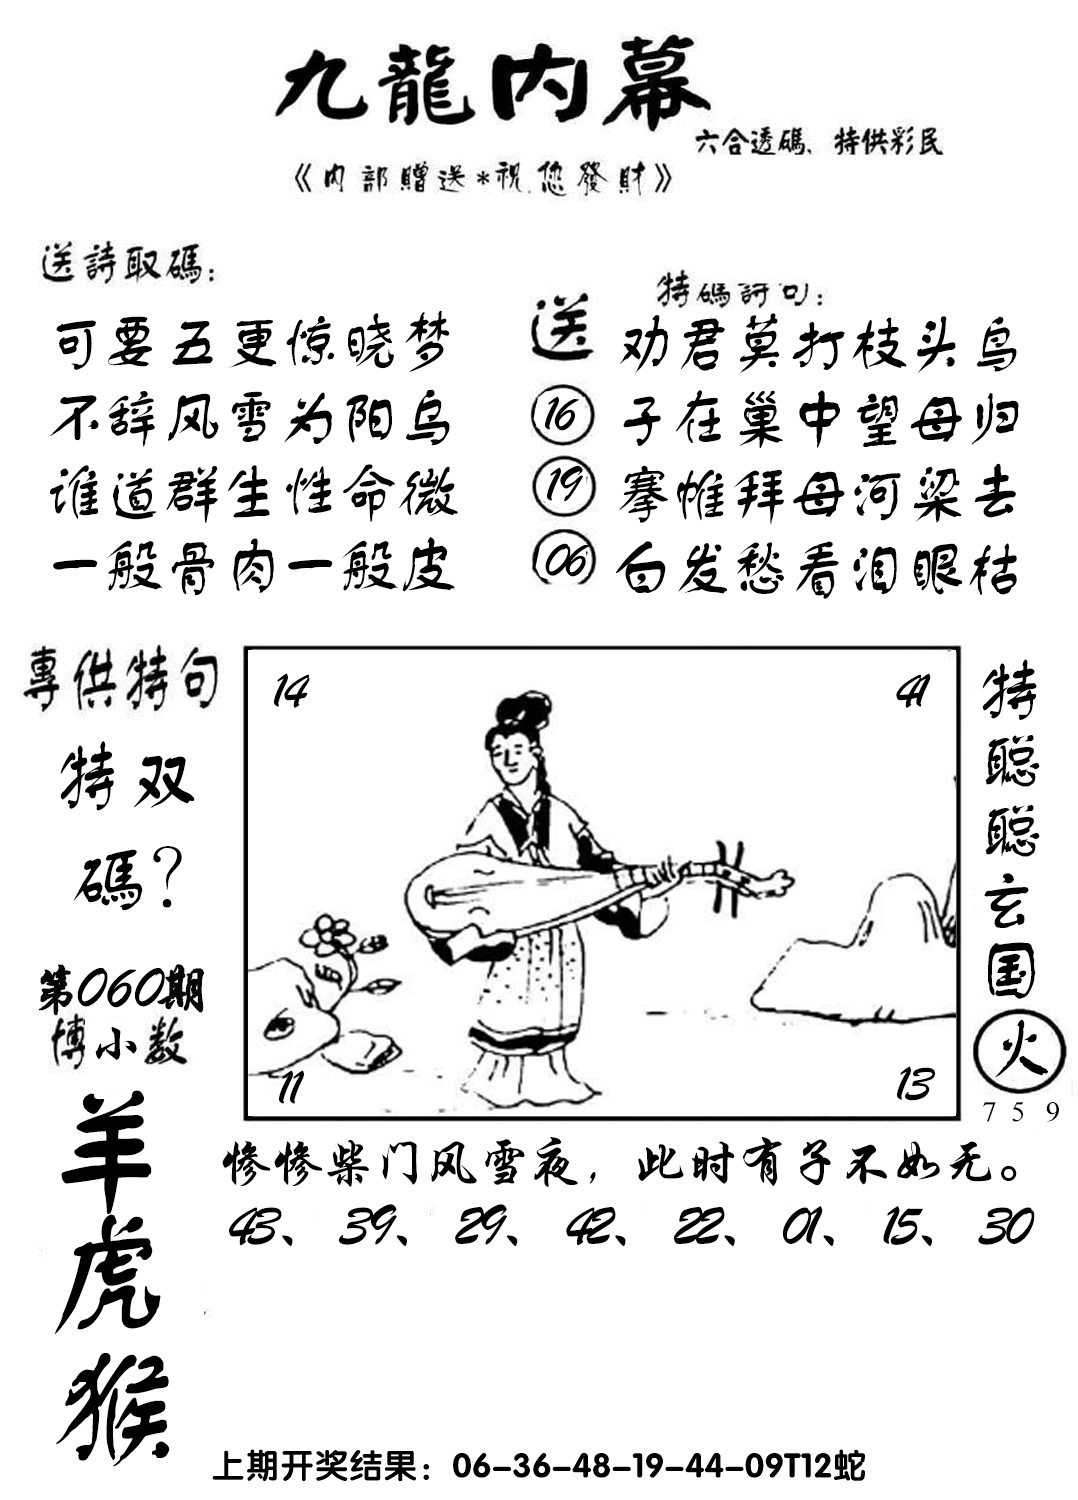 九龍内幕
六合透碼、特供彩民
《内部贈送*祝您發財》
送詩取碼：
可要五更惊晓梦
不辞风雪为阳乌
谁道群生性命微
一般骨肉一般皮
送
16
19
06
特碼詩句：
劝君莫打枝头鸟
子在巢中望母归
搴帷拜母河梁去
白发愁看泪眼枯
專供特句
特双
碼？
第060期
博小数
羊
虎
猴
14
41
11
13
特聪聪玄国
火
7 5 9
惨惨柴门风雪夜，此时有子不如无。
43、39、29、42、22、01、15、30
上期开奖结果：06-36-48-19-44-09T12蛇